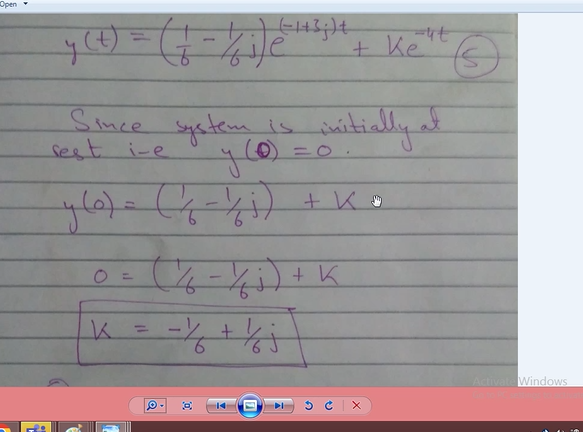 Open
y(t) = (1/6 - 1/6 j) e^(-1+3j)t + Ke^-4t (5)
Since system is initially at
rest i-e y(0) = 0.
y(0) = (1/6 - 1/6 j) + K
0 = (1/6 - 1/6 j) + K
K = -1/6 + 1/6 j
Activate Windows